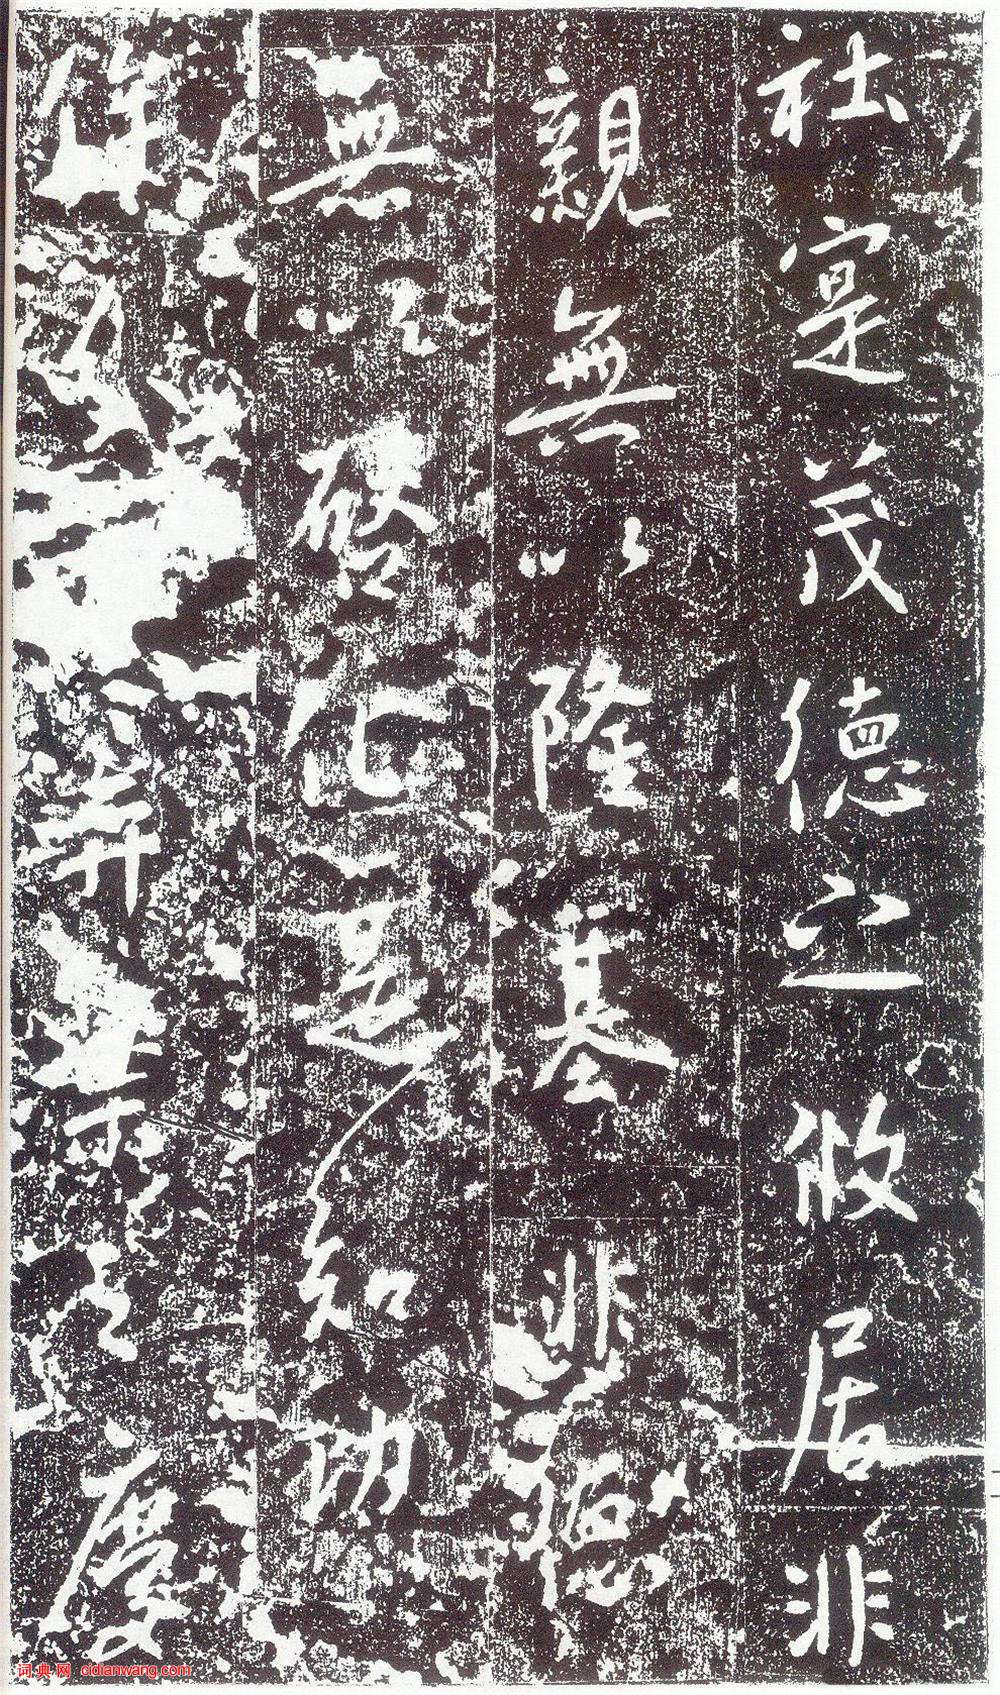 社寔茂德之攸居非
親無以隆基非德
無以啓化是知功
侔分奕葉之慶
词典网 cidianwang.com